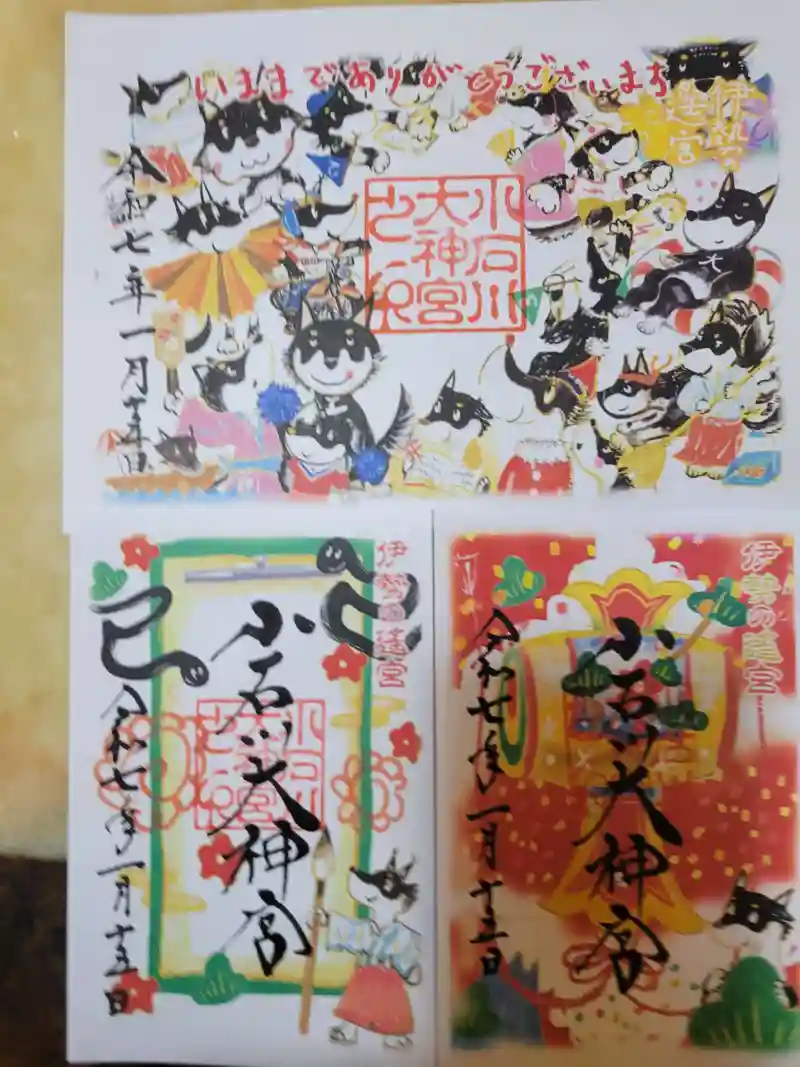 いままでありがとうございます
伊勢の
遥宮
小石川
大神宮
之印
令和七年一月十五日
伊勢の遥宮
巳
小石川大神宮
小石川
大神宮
之印
令和七年一月十五日
伊勢の遥宮
小石川大神宮
令和七年一月十五日